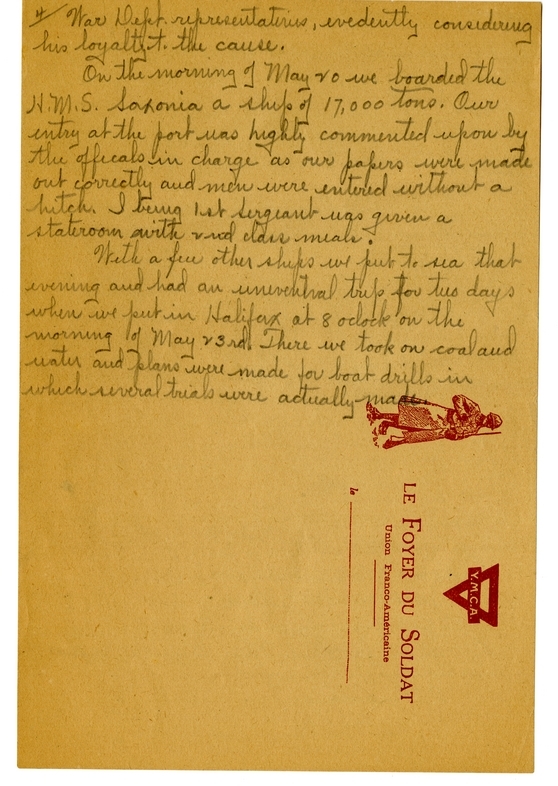 4/ War Dept. representativs, evedently considering
his loyalty to the cause.
On the morning of May 20 we boarded the
H.M.S. Saxonia a ship of 17,000 tons. Our
entry at the port was highly commented upon by
the officals in charge as our papers were made
out correctly and men were entered without a
hitch. I being 1st Sergeant was given a
stateroom with 2nd class meals.
With a few other ships we put to sea that
evening and had an uneventral trip for two days
when we put in Halifax at 8 oclock on the
morning of May 23rd. There we took on coal and
water and plans were made for boat drills in
which several trials were actually made.
Y.M.C.A.
LE FOYER DU SOLDAT
Union Franco-Américaine
le